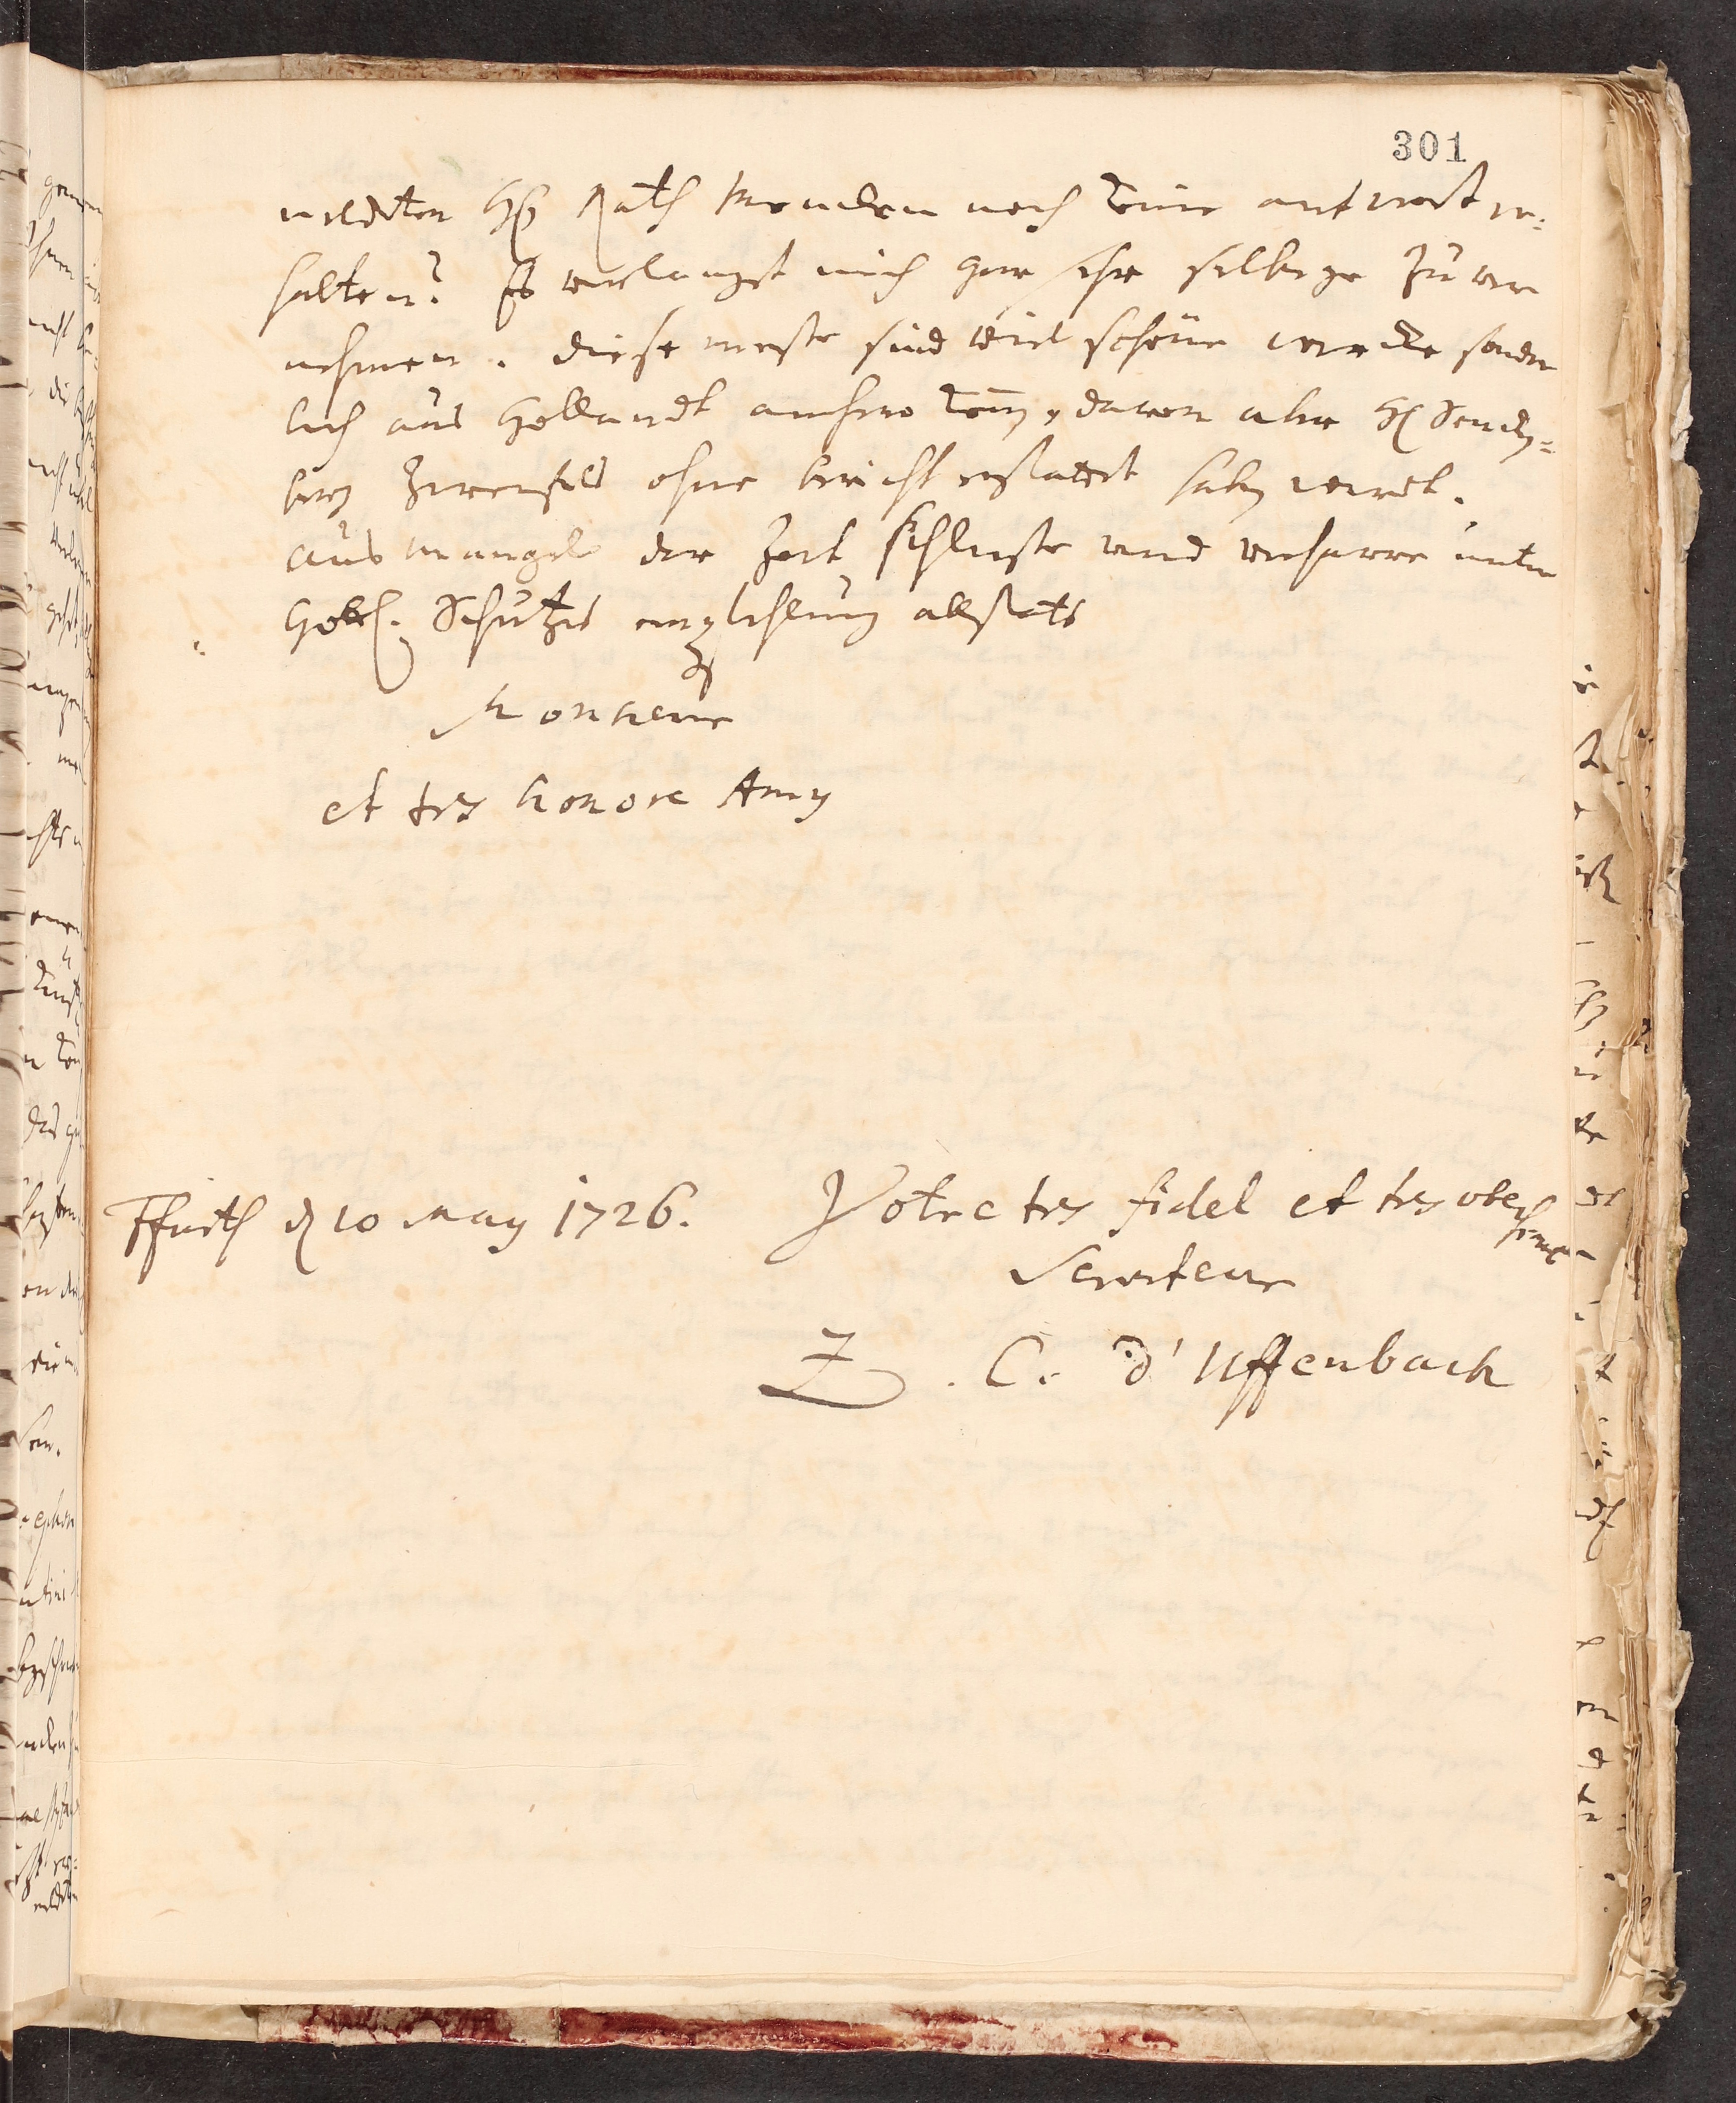 301
meldeten Hℓ Rath Mencken noch keine antwort er-
halten? Es verlanget mich gar sehr selbige zu ver
nehmen. Diese messe sind viel schöne wercke sonder
lich aus Hollandt anhero kom̄, davon aber H
berg zweifels ohne bericht erstattet haben wirdt.
aus mangel der Zeit schliesse und verharre unter
Göttl. Schutzes empfehlung allstets
Monsieur
et tres honore Amy
Ffurth d 10 May 1726.
Votre tres fidel et tres obeissant
Serviteur
Z. C. d'Uffenbach